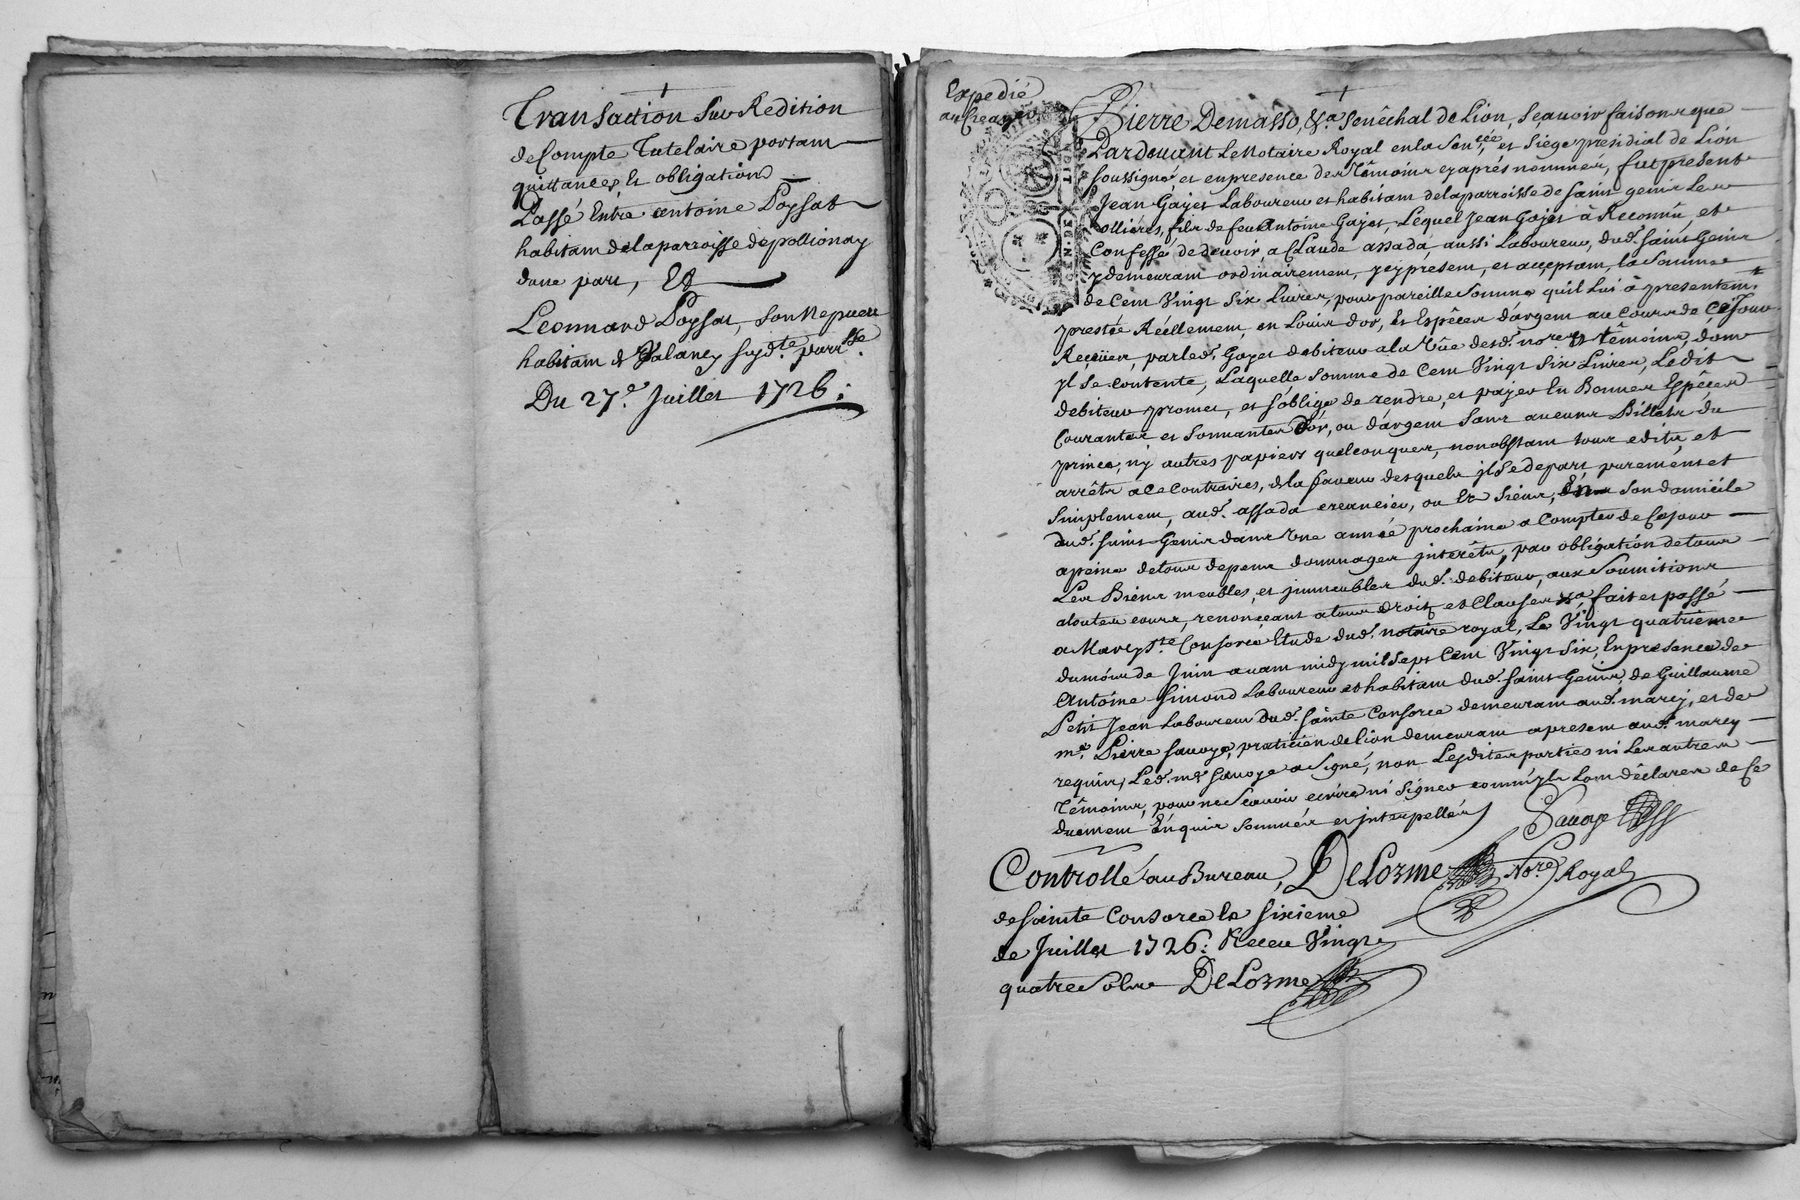 Transaction sur Redition
de Compte Tutelaire portam
quittances, et obligation
Passé Entre antoine Poysat
habitam de la parroisse de pollionay
dune part, Et
Leonnard Poysat, son Nepueu
habitam de Valancy susd.te parr.sse
Du 27.e Juillet 1726:
Expedié
au Creancier
Pierre Demasso, &.a Senêchal de Lion, Sçauoir faisons que
Pardeuant Le Notaire Royal en la Sen.cée et Siège presidial de Lion
soussigné, et en presence des Têmoins cy aprés nommés, fut present
Jean Gayet Laboureur et habitam de la parroisse de saint genis Les
ollières, fils de feu Antoine Gayet, Lequel Jean Gayet à Reconnû, et
Confessé de deuoir, a Claude assada, aussi Laboureur, dud. Saint Genis
y demeuram ordinairement, ycy présent, et acceptam, la somme
de Cent Vingt Six Livres, pour pareille Somme qu'il Lui à presentem.t
prestée Réellement, en Loüis d'or, et Espêces d'argent au Cours de Ce Jour
Reçües, par led. Gayet debiteur a la Vûe desd. no.re et têmoins, dont
yl se contente, Laquelle somme de Cent Vingt Six Livres, Ledit
debiteur promet, et s'oblige de rendre, et payer En Bonnes Espêces
Courantes et Sonnantes d'or, ou d'argent Sans aucuns Billets du
prince, ny autres papiers quelconques, nonobstam tous edits et
arrêts a ce contraires, de la faueur desquels yl se depart, purement et
simplement, aud. assada creancier, ou Es Siens, En son domicile
dud. saint Genis dans Vne année prochaine a Compter de Ce Jour
a peine de tous depens dommages interêts, par obligation de tous
Les Biens meubles, et jmmeubles dud. debiteur, aux soumitions
a toutes cours, renonceant a tous droits et Clauses &.a, fait et passé
a Marcy S.te Consorce Etude dud. notaire royal, Le Vingt quatrième
du mois de Juin auam midy mil Sept Cent Vingt Six, En presence de
Antoine Simond Laboureur et habitam dud. Saint Genis, de Guillaume
Petit Jean Laboureur dud. Sainte Consorce demeuram aud. marcy, et de
m.e Pierre Sauoye, praticien de lion demeuram a presem aud. marcy
requis, Led. m.e Sauoye a Signé, non Lesdites parties ni Les autres
Têmoins, pour ne Scauoir ecrire ni Signer comm'yls L'ont dêclarés de Ce
duement Enquis Sommés et interpellés
Sauoye
Controllé au Bureau, DeLorme No.re Royal
de Sainte Consorce Le Sixieme
de Juillet 1726: Receu Vingt
quatre Sols DeLorme